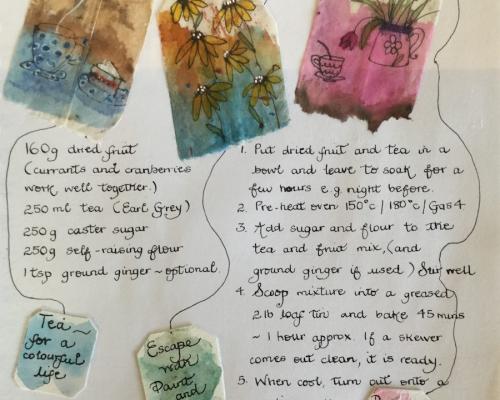 160g dried fruit
(currants and cranberries
work well together.)
250 ml tea (Earl Grey)
250g caster sugar
250g self-raising flour
1 tsp ground ginger ~ optional.
1. Put dried fruit and tea in a
bowl and leave to soak for a
few hours e.g. night before.
2. Pre-heat oven 150°c / 180°c / Gas 4
3. Add sugar and flour to the
tea and fruit mix, (and
ground ginger if used) Stir well
4. Scoop mixture into a greased
2lb loaf tin and bake 45 mins
~ 1 hour approx. If a skewer
comes out clean, it is ready.
5. When cool, turn out onto a
Tea ~
for a
colourful
life
Escape
with
Paint
and